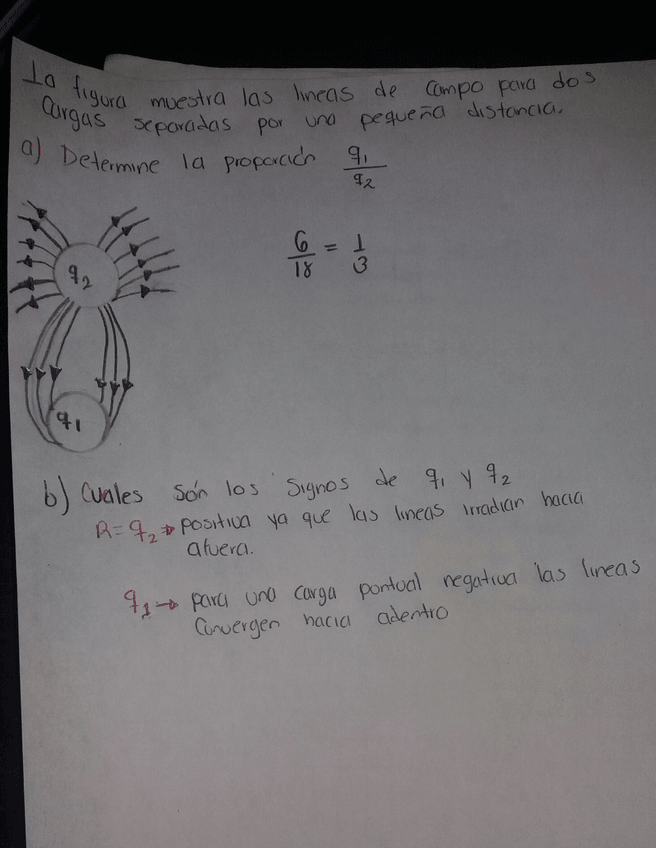 La figura muestra las lineas de campo para dos
Cargas separadas por una pequeña distancia.
a) Determine la proporción q1/q2
6/18 = 1/3
q2
q1
b) Cuales són los signos de q1 y q2
R= q2→ positiva ya que las lineas irradian hacia
afuera.
q1→ para una carga pontual negativa las lineas
Convergen hacia adentro